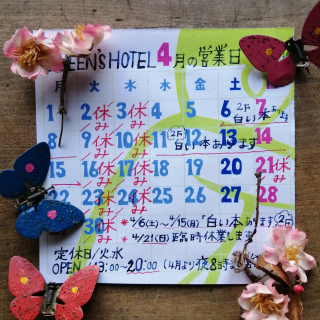 EEN'S HOTEL 4月の営業日
月 火 水 木 金 土 日
1 2休み 3休み 4 5 6 7
2F 白い本あります
8 9休み 10休み 11 12 13 14
2F 白い本あります
15 16休み 17休み 18 19 20 21休み
22 23休み 24休み 25 26 27 28
29 30休み
*4/6(土)〜4/15(月)『白い本あります』2F
*4/21(日)臨時休業します
定休日/火.水
OPEN 13:00〜20:00 (4月より夜8時まで